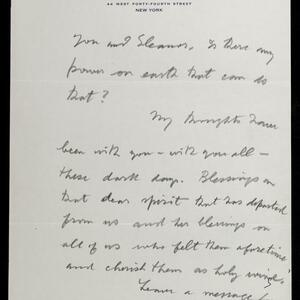 44 WEST FORTY-FOURTH STREET
NEW YORK
You and Eleanor. Is there any
power on earth that can do
that?
My thoughts have
been with you – with you all –
these dark days. Blessings on
that dear spirit that has departed
from us and her blessings on
all of us who felt them aforetime
and cherish them as holy
Leave a message